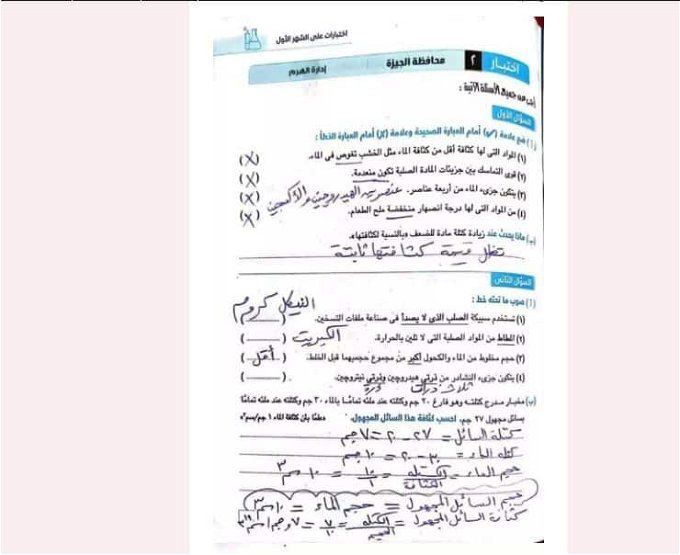 اختبارات على الشهر الأول
اختبار ٢ محافظة الجيزة إدارة الهرم
أجب عن جميع الأسئلة الآتية :
السؤال الأول
(أ) ضع علامة (✓) أمام العبارة الصحيحة وعلامة (✗) أمام العبارة الخطأ :
(١) المواد التى لها كثافة أقل من كثافة الماء مثل الخشب تغوص فى الماء. (X)
(٢) قوى التماسك بين جزيئات المادة الصلبة تكون منعدمة. (X)
(٣) يتكون جزىء الماء من أربعة عناصر. عنصرين الهيدروجين والأكسجين (X)
(٤) من المواد التى لها درجة انصهار منخفضة ملح الطعام. (X)
(ب) ماذا يحدث عند زيادة كتلة مادة للضعف وبالنسبة لكثافتها؟
تظل قيمة كثافتها ثابتة
السؤال الثانى
(أ) صوب ما تحته خط :
النيكل كروم
(١) تستخدم سبيكة الصلب الذى لا يصدأ فى صناعة ملفات التسخين. (        )
(٢) المطاط من المواد الصلبة التى لا تلين بالحرارة. الكبريت (        )
(٣) حجم مخلوط من الماء والكحول أكبر من مجموع حجميهما قبل الخلط. (أقل)
(٤) يتكون جزىء النشادر من ذرتى هيدروجين وذرتى نيتروجين. (        )
ثلاث ذرات ذرة
(ب) مخبار مدرج كتلته وهو فارغ ٢٠ جم وكتلته عند ملئه تمامًا بالماء ٣٠ جم وكتلته عند ملئه تمامًا
بسائل مجهول ٢٧ جم. احسب كثافة هذا السائل المجهول. علمًا بأن كثافة الماء ١ جم/سم٣
كتلة السائل = ٢٧ - ٢٠ = ٧ جم
كتلة الماء = ٣٠ - ٢٠ = ١٠ جم
حجم الماء = الكتلة / الكثافة = ١٠ / ١ = ١٠ سم٣
حجم السائل المجهول = حجم الماء = ١٠ سم٣
كثافة السائل المجهول = الكتلة / الحجم = ٧ / ١٠ = ٠,٧ جم/سم٣